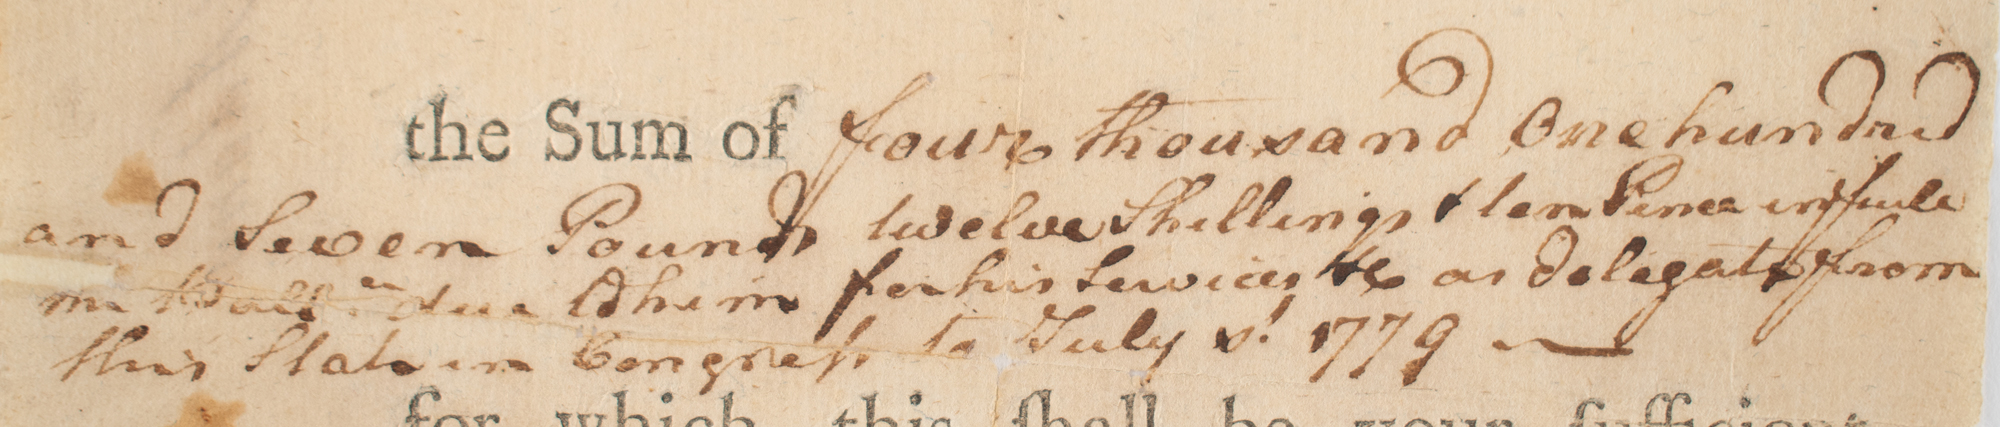 the Sum of four thousand One hundred
and Seven Pounds twelve Shillings & ten Pence in full
due to him for his Services &c as delegate from
this State in Congress to July 1779 —
for which this shall be your sufficient